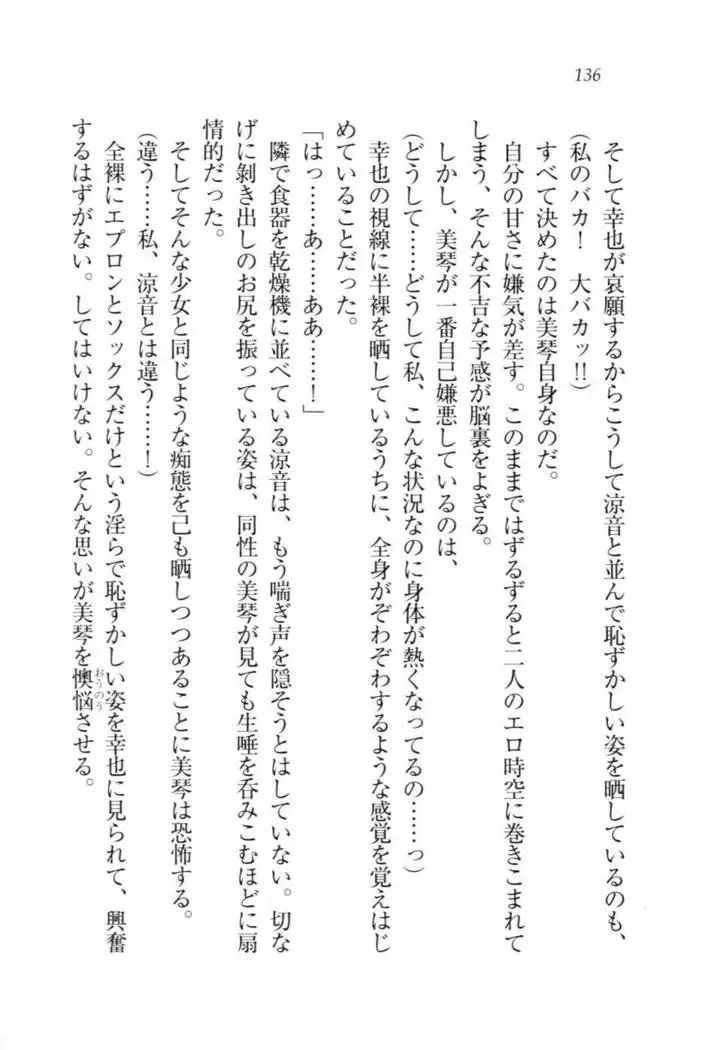 136
そして幸也が哀願するからこうして涼音と並んで恥ずかしい姿を晒しているのも、
(私のバカ！　大バカッ!!)
すべて決めたのは美琴自身なのだ。
自分の甘さに嫌気が差す。このままではずるずると二人のエロ時空に巻きこまれて
しまう、そんな不吉な予感が脳裏をよぎる。
しかし、美琴が一番自己嫌悪しているのは、
(どうして……どうして私、こんな状況なのに身体が熱くなってるの……っ)
幸也の視線に半裸を晒しているうちに、全身がぞわぞわするような感覚を覚えはじ
めていることだった。
「はっ……あ……ああ……！」
隣で食器を乾燥機に並べている涼音は、もう喘ぎ声を隠そうとはしていない。切な
げに剝き出しのお尻を振っている姿は、同性の美琴が見ても生唾を呑みこむほどに扇
情的だった。
そしてそんな少女と同じような痴態を己も晒しつつあることに美琴は恐怖する。
(違う……私、涼音とは違う……！)
全裸にエプロンとソックスだけという淫らで恥ずかしい姿を幸也に見られて、興奮
するはずがない。してはいけない。そんな思いが美琴を懊悩させる。
おうのう